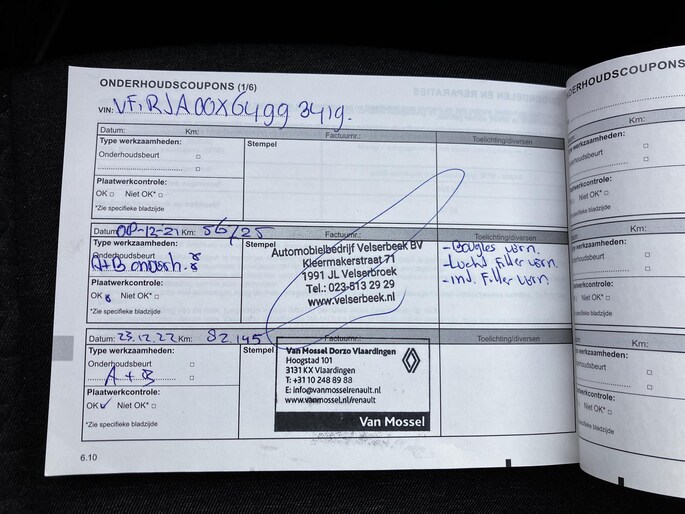 ONDERHOUDSCOUPONS (1/6)
VIN: VF1RJA00X64993419.
Datum: Km: Factuurnr.: Toelichting/diversen
Type werkzaamheden: Stempel
Onderhoudsbeurt
Plaatwerkcontrole:
OK Niet OK*
*Zie specifieke bladzijde
Datum: -12-21 Km: Factuurnr.: Toelichting/diversen
Type werkzaamheden:
Onderhoudsbeurt
A+B onderh.
Plaatwerkcontrole:
OK Niet OK*
*Zie specifieke bladzijde
Automobielbedrijf Velserbeek BV
Kleermakerstraat 71
1991 JL Velserbroek
Tel.: 023-513 29 29
www.velserbeek.nl
- Bougies vern.
- Lucht filter vern.
- int. filter vern.
Datum: 23.12.22 Km: 82.145 Factuurnr.: Toelichting/diversen
Type werkzaamheden: Stempel
Onderhoudsbeurt
A + B
Plaatwerkcontrole:
OK Niet OK*
*Zie specifieke bladzijde
Van Mossel Dorzo Vlaardingen
Hoogstad 101
3131 KX Vlaardingen
T: +31 10 248 89 88
E: info@vanmosselrenault.nl
www.vanmossel.nl/renault
Van Mossel
6.10
NDERHOUDSCOUPONS
Km:
Type werkzaamheden:
Onderhoudsbeurt
Plaatwerkcontrole:
Niet OK*
specifieke bladzijde
Km:
werkzaamheden:
Onderhoudsbeurt
Plaatwerkcontrole:
OK Niet OK*
*Zie specifieke bladzijde
Datum: Km:
Type werkzaamheden:
Onderhoudsbeurt
Plaatwerkcontrole:
OK Niet OK*
*Zie specifieke bladzijde